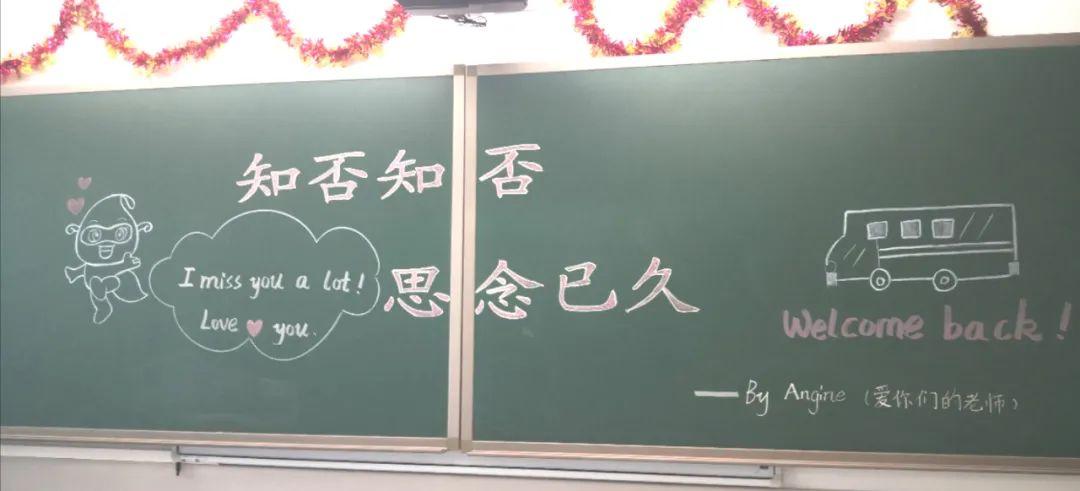 知否知否
I miss you a lot!
Love you.
思念已久
Welcome back!
——By Angine（爱你们的老师）